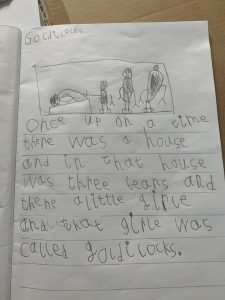 Goldilocks
Once up on a time
there was a house
and in that house
was three tears and
there a little girle
and that girle was
called goldilocks.